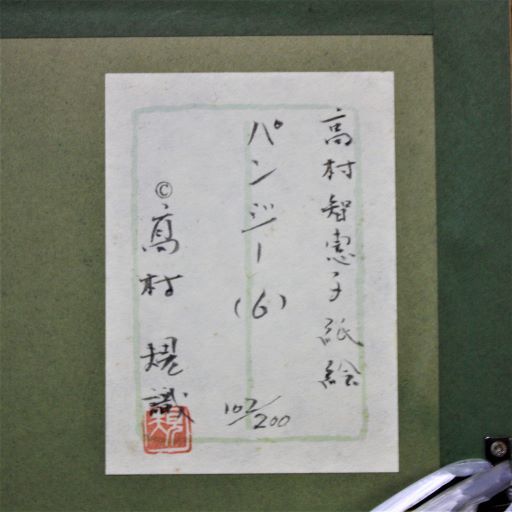 高村智恵子紙絵
パンジー(6)
102/200
©高村規識
規